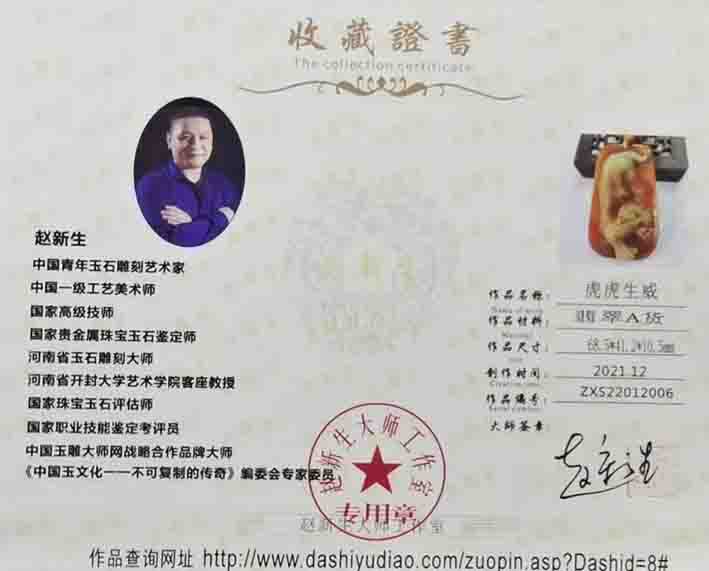 收藏證書
The collection certificate
赵新生
中国青年玉石雕刻艺术家
中国一级工艺美术师
国家高级技师
国家贵金属珠宝玉石鉴定师
河南省玉石雕刻大师
河南省开封大学艺术学院客座教授
国家珠宝玉石评估师
国家职业技能鉴定考评员
中国玉雕大师网战略合作品牌大师
《中国玉文化——不可复制的传奇》编委会专家委员
作品名称： 虎虎生威
Name of work
作品材料： 翡翠A货
Material
作品尺寸：
size
创作时间： 2021.12
Creation time
作品编号： ZXS22012006
Serial number
大师签章：
赵新生
赵新生大师工作室
专用章
赵新生大师工作室
作品查询网址 http://www.dashiyudiao.com/zuopin.asp?Dashid=8#